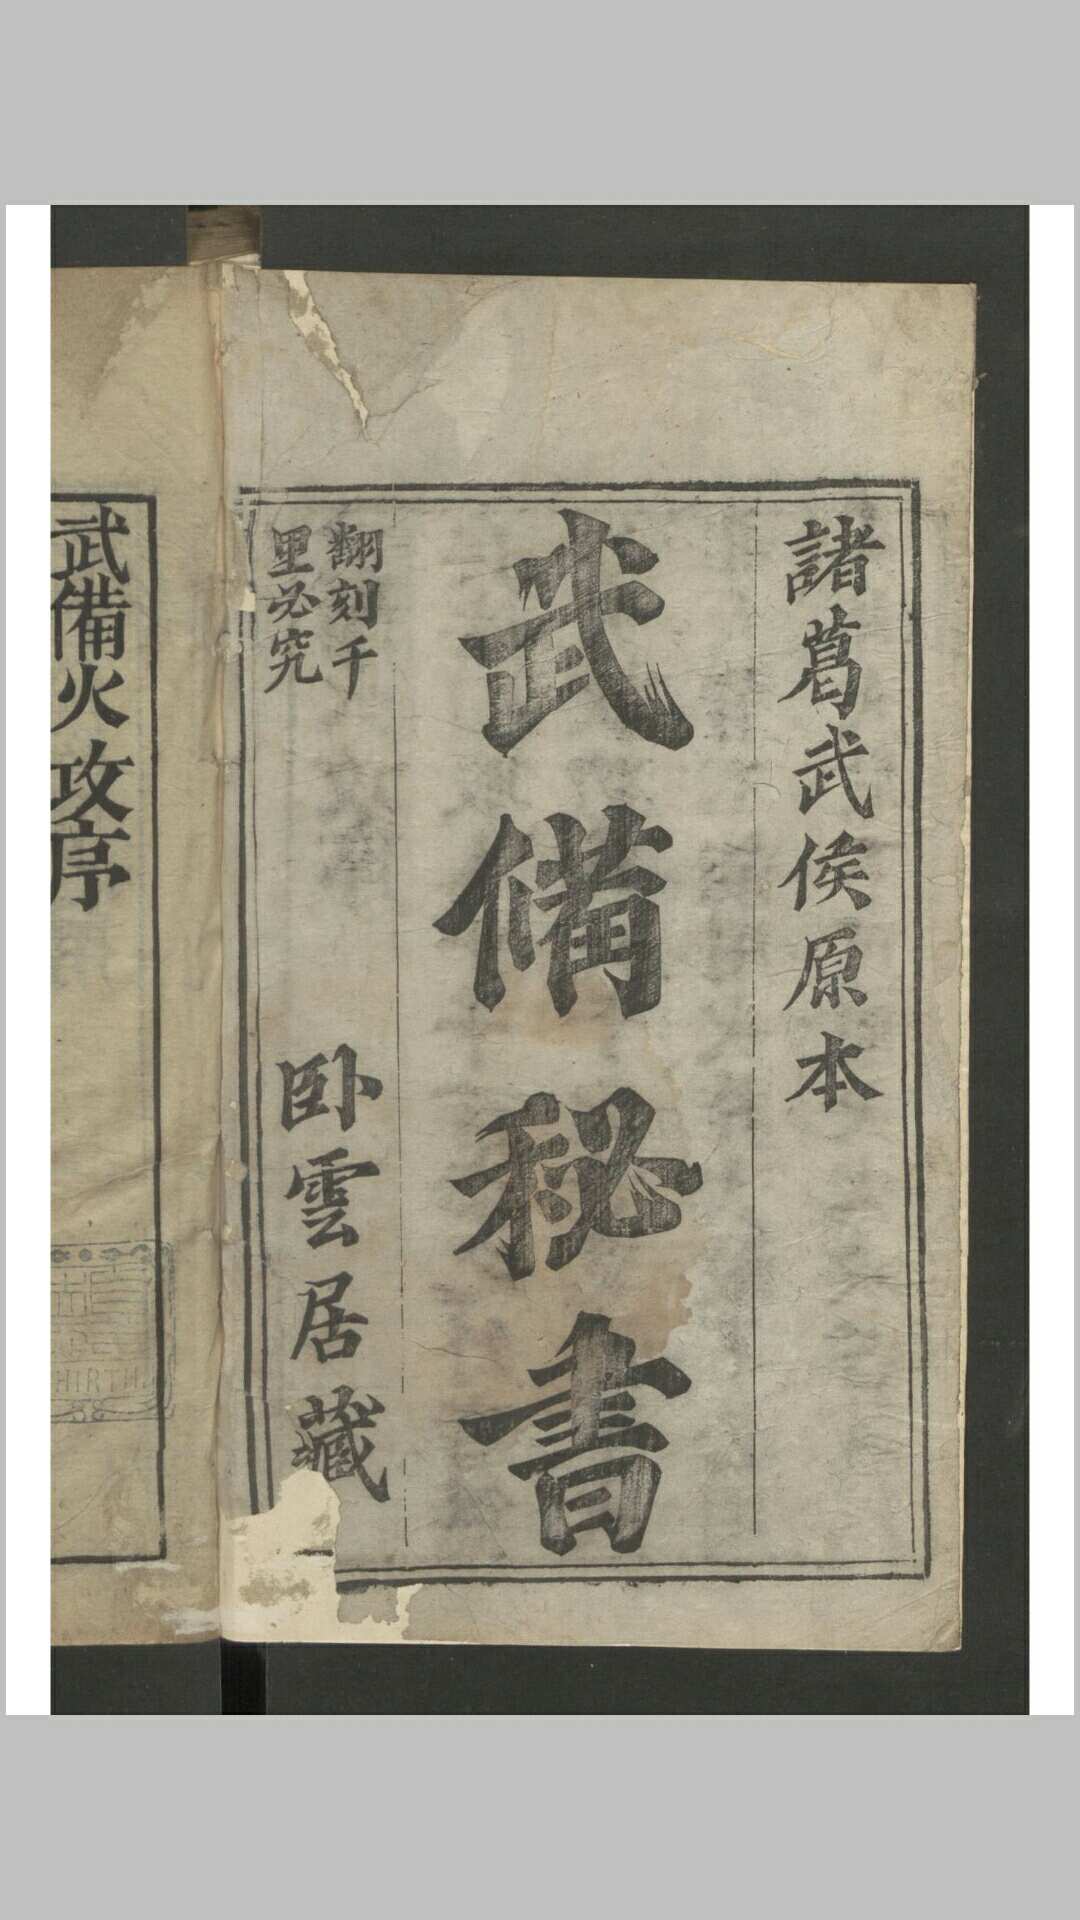 諸葛武侯原本
武備秘書
翻刻千
里必究
卧雲居藏
武備火攻序
HIRTH